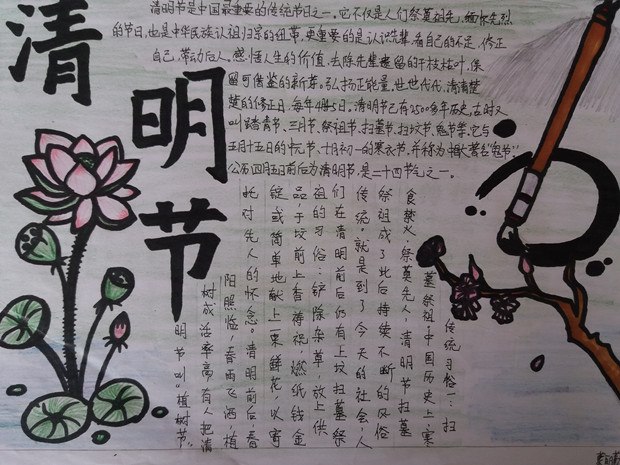 清明节
清明节是中国最重要的传统节日之一。它不仅是人们祭奠祖先,缅怀先烈
的节日,也是中华民族认祖归宗的纽带。更重要的是认识先辈看自己的不足,修正
自己,带动后人。感悟人生的价值,去除先辈遗留的干枝枯叶,保
留可借鉴的新芽。弘扬正能量,世世代代,清清楚
楚的修正日。每年4月5日。清明节已有2500多年历史,古时又
叫踏青节、三月节、祭祖节、扫墓节、扫坟节、鬼节等。它与
七月十五日的中元节、十月初一的寒衣节,并称为著名"鬼节"。
公历四月五日前后为清明节,是二十四节气之一。
传统习俗一:扫
墓祭祖,中国历史上,寒
食禁火,祭奠先人,清明节扫墓
祭祖成了此后持续不断的风俗
传统,就是到了今天的社会,人
们在清明前后仍有上坟扫墓祭
祖的习俗:铲除杂草,放上供
品,于坟前上香祷祝,燃纸钱金
锭或简单地献上一束鲜花,以寄
托对先人的怀念。清明前后,春
阳照临,春雨飞洒,植
树成活率高,有人把清
明节叫"植树节"。